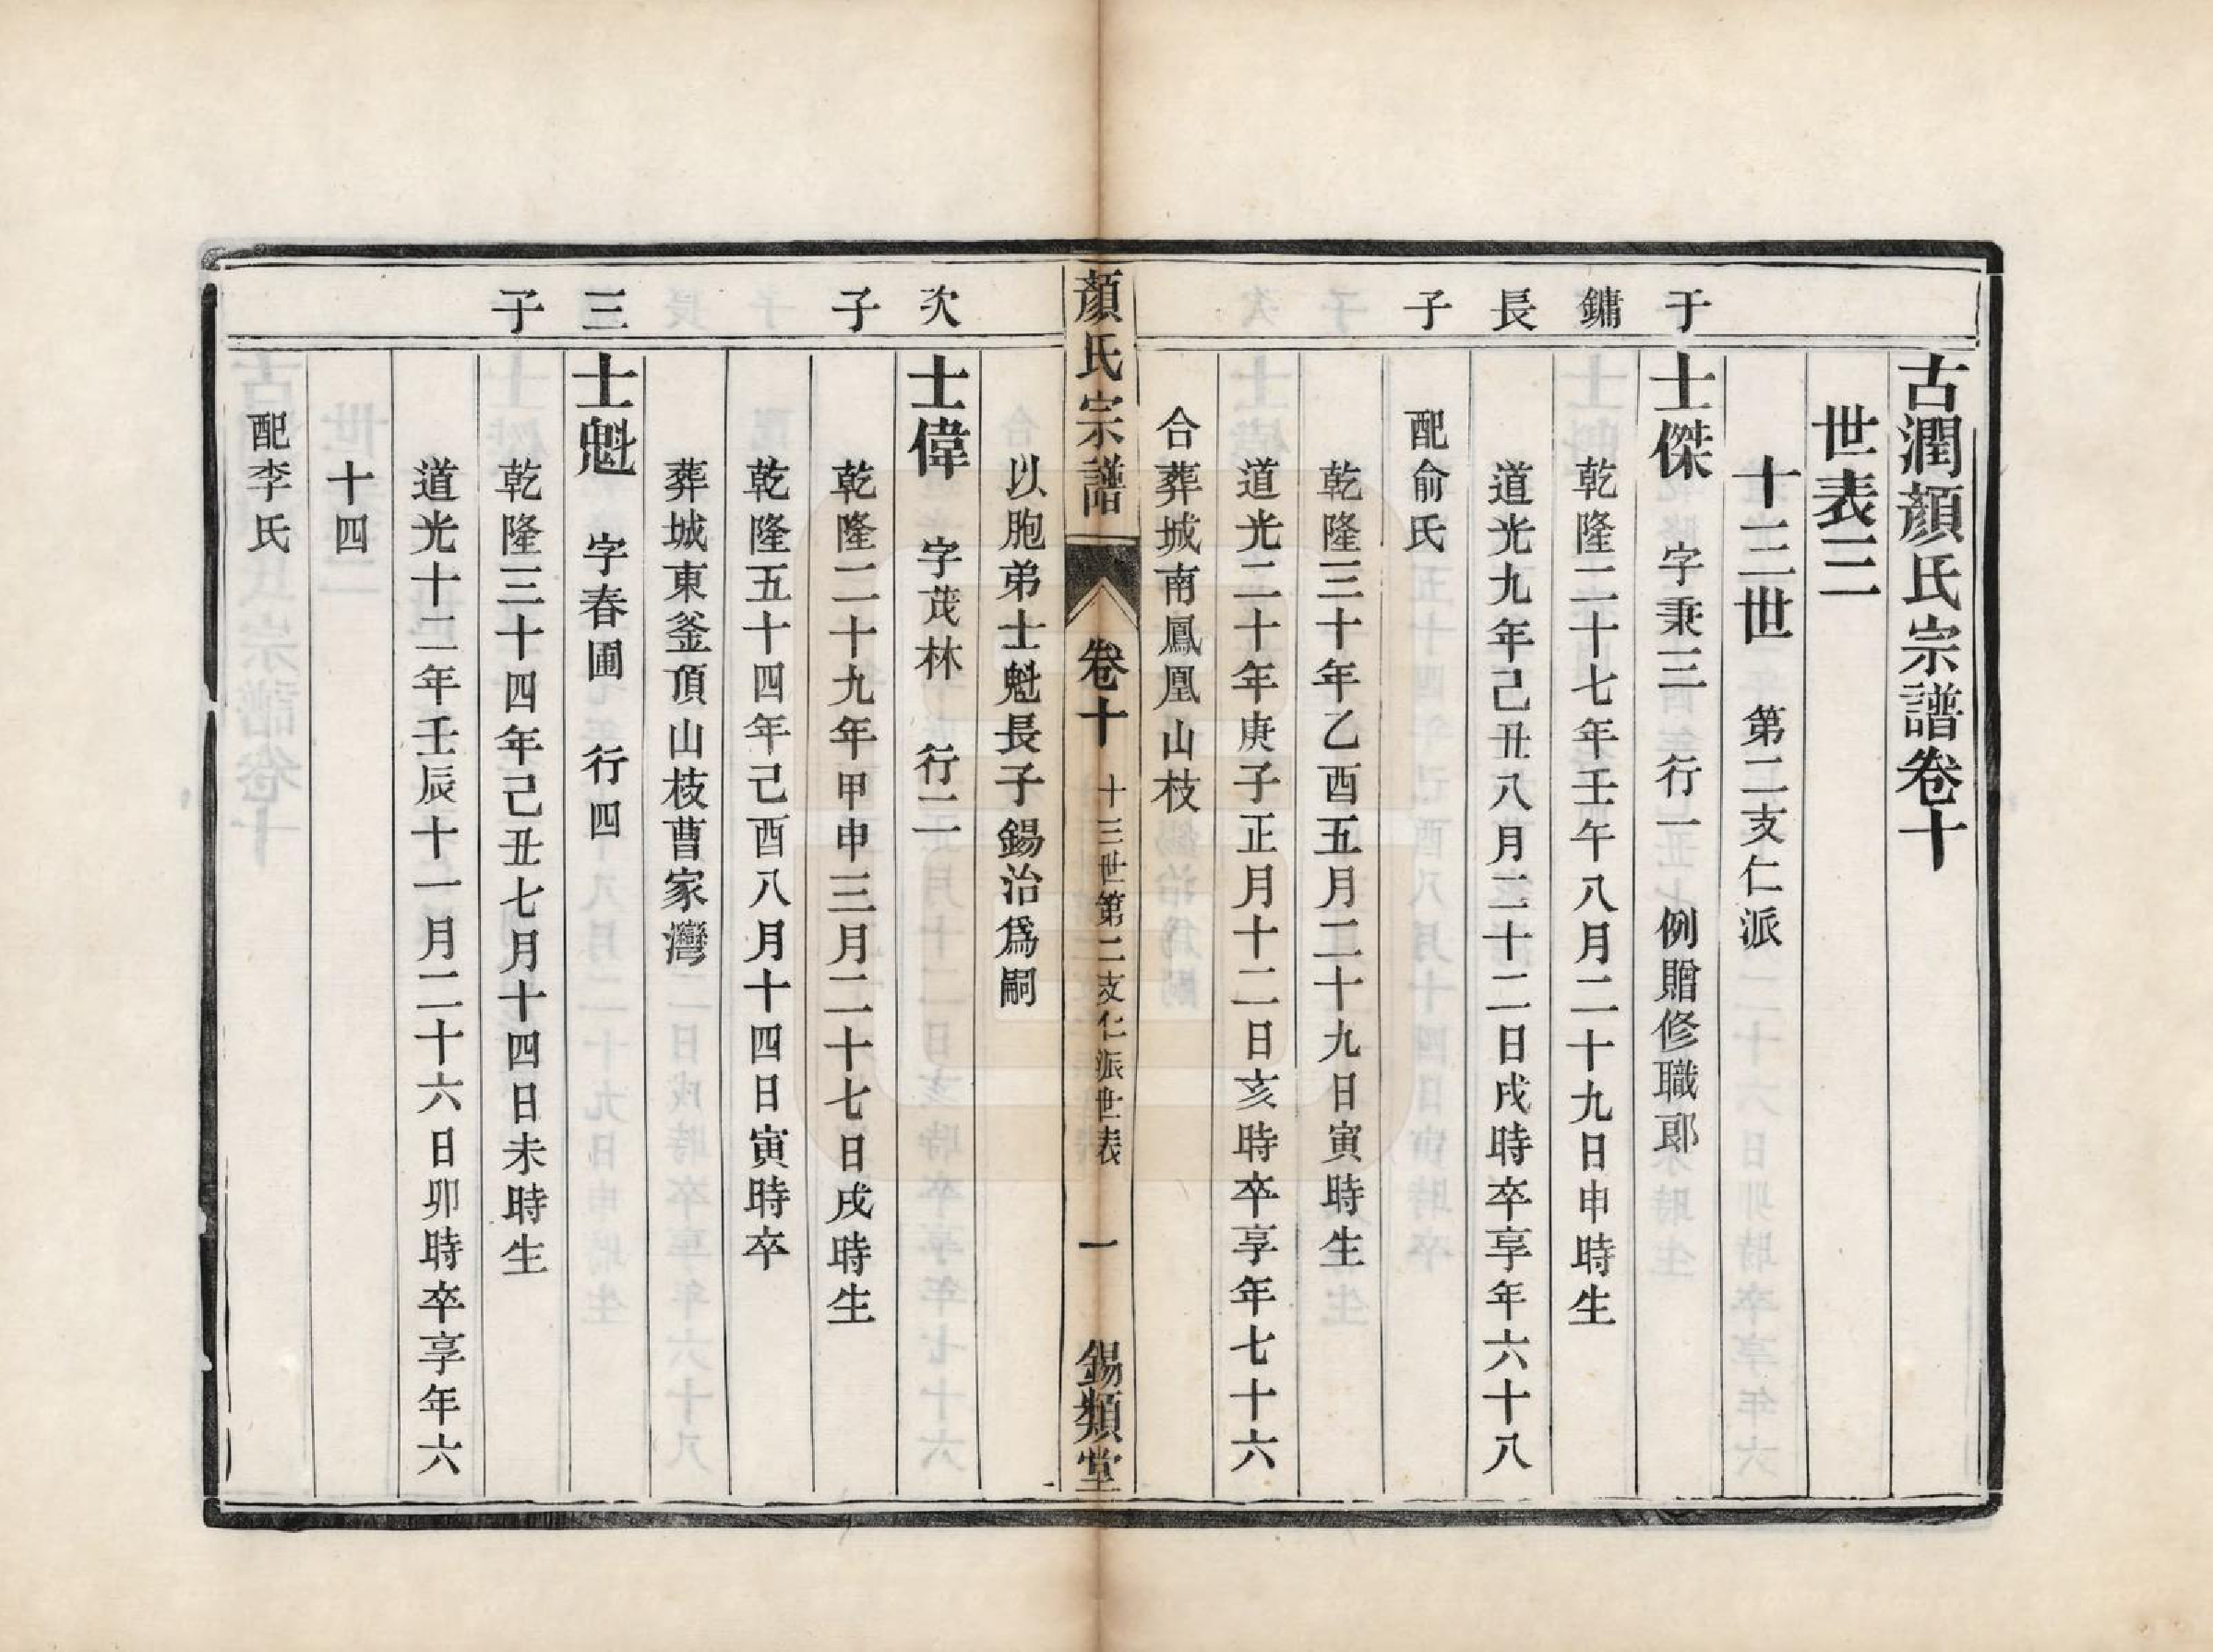 古潤顏氏宗譜卷十
世表三
十三世 第二支仁派
于鏞長子
士傑 字秉三 行一 例贈修職郎
乾隆二十七年壬午八月二十九日申時生
道光九年己丑八月二十二日戌時卒享年六十八
配俞氏
乾隆三十年乙酉五月二十九日寅時生
道光二十年庚子正月十二日亥時卒享年七十六
合葬城南鳳凰山枝
顏氏宗譜 卷十 十三世第二支仁派世表 一 錫類堂
以胞弟士魁長子錫治爲嗣
次子
士偉 字茂林 行二
乾隆二十九年甲申三月二十七日戌時生
乾隆五十四年己酉八月十四日寅時卒
葬城東釜頂山枝曹家灣
三子
士魁 字春圃 行四
乾隆三十四年己丑七月十四日未時生
道光十二年壬辰十一月二十六日卯時卒享年六
十四
配李氏